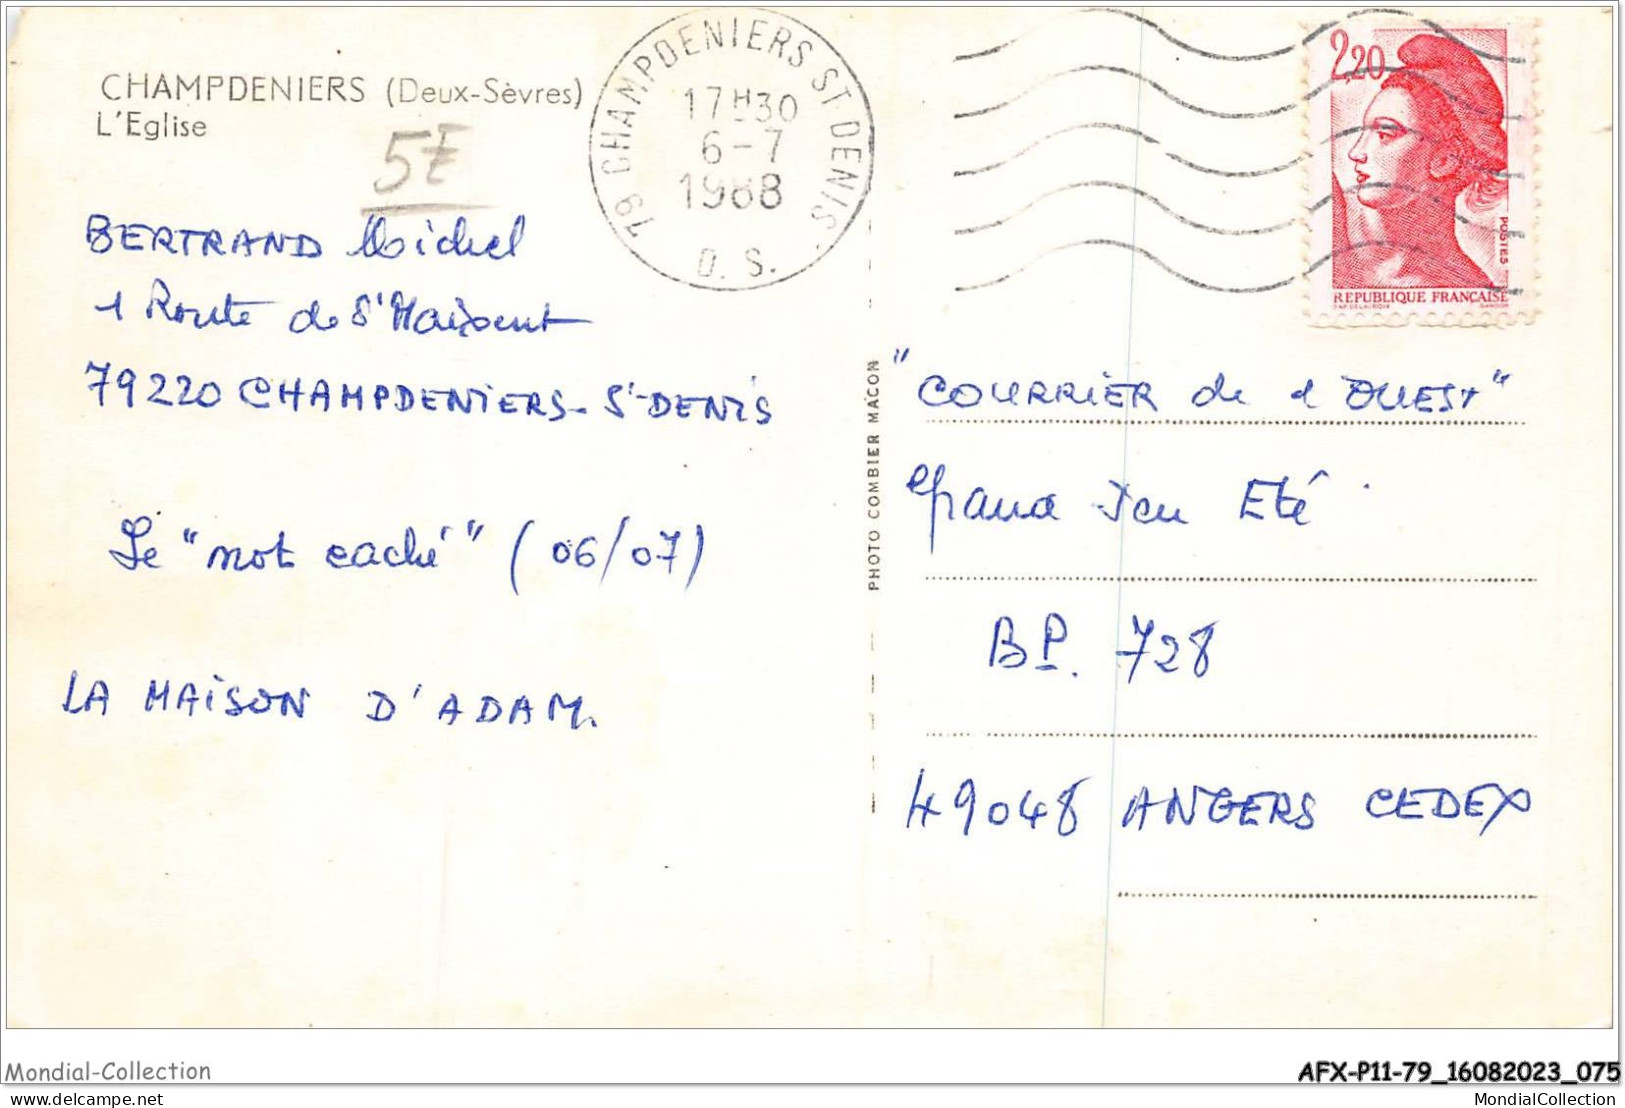 CHAMPDENIERS (Deux-Sèvres)
L'Eglise
5F
79 CHAMPDENIERS ST DENIS
17H30
6-7
1988
D.S.
2,20
POSTES
REPUBLIQUE FRANÇAISE
BERTRAND Michel
1 Route de St Maixent
79220 CHAMPDENIERS-St-DENIS
Le "mot caché" (06/07)
LA MAISON D'ADAM.
PHOTO COMBIER MACON
"COURRIER de l'OUEST"
Grand Jeu Eté
BP. 728
49048 ANGERS CEDEX
Mondial-Collection
AFX-P11-79_16082023_075
delcampe.net
MondialCollection